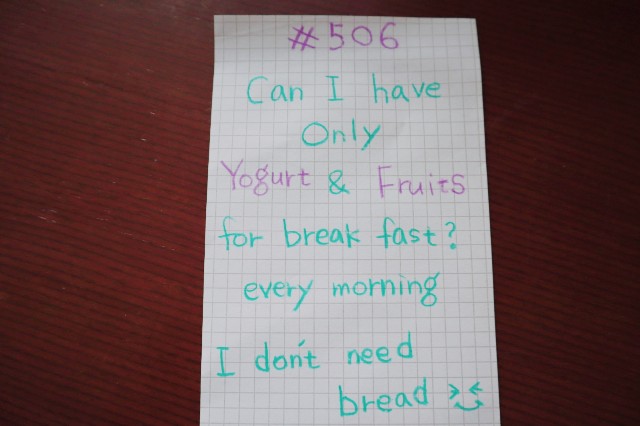 #506
Can I have
Only
Yogurt & Fruits
for break fast?
every morning
I don't need
bread ><